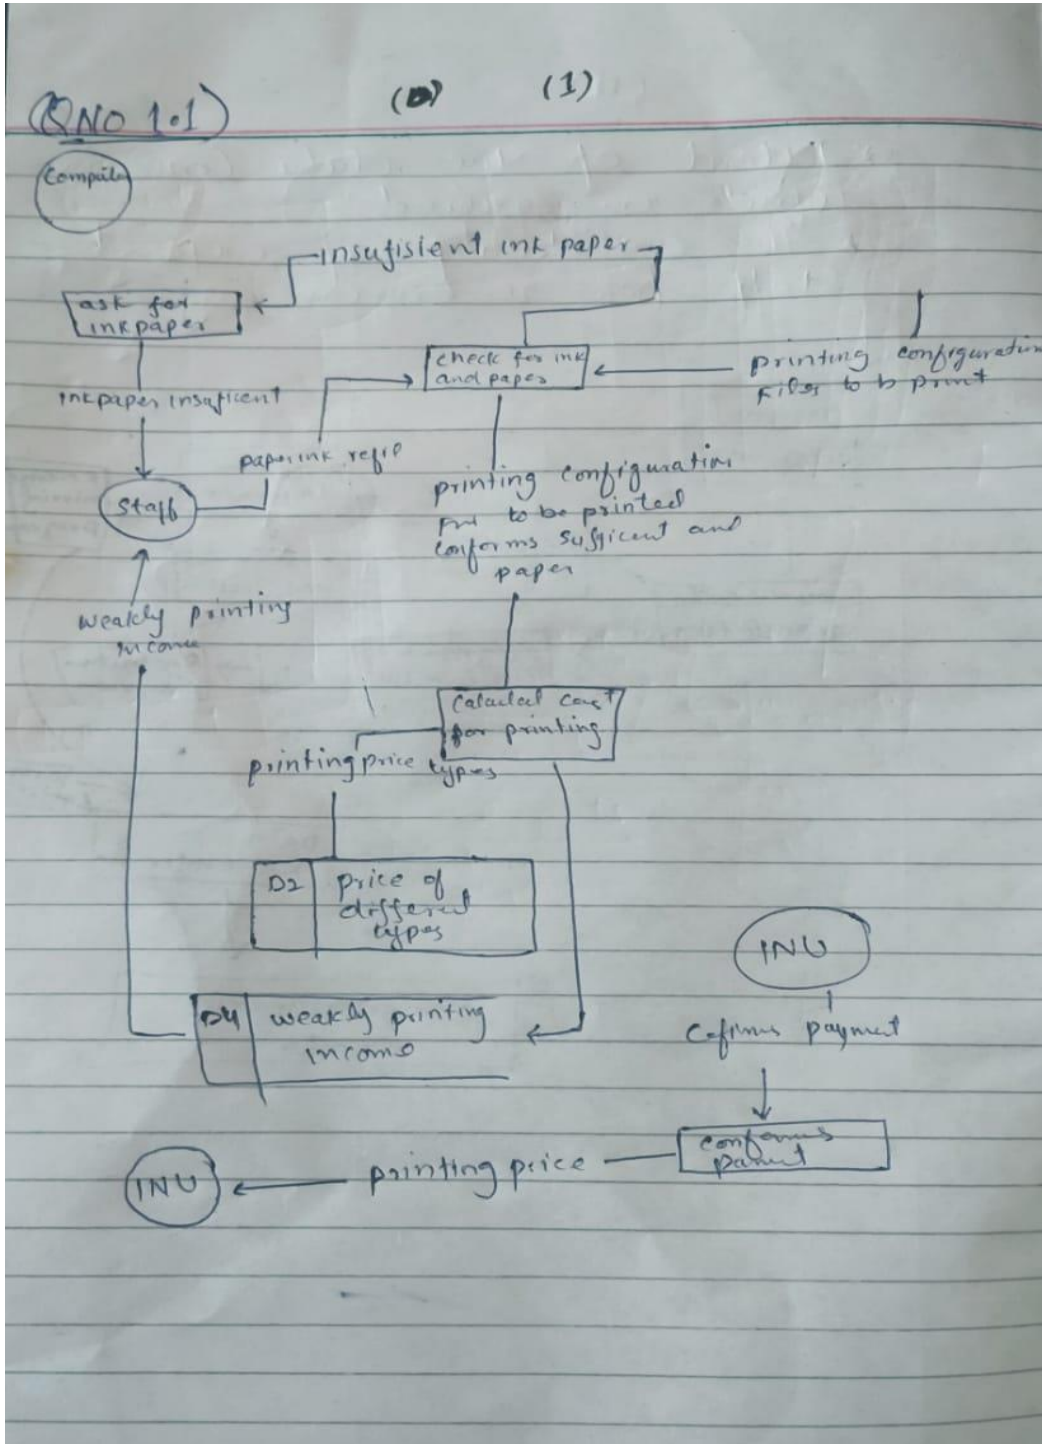 (QNO 1.1)
(D) (1)
Compiler
insufisient ink paper
ask for
inkpaper
check for ink
and paper
printing configuration
Files to b print
inkpaper insuficent
paperink refil
Staff
printing configuration
to be printed
conforms sufficent and
paper
weakly printing
income
cost
for printing
printing price types
D2
price of
differend
types
INU
D4
weakly printing
income
payment
conforms
INU
printing price